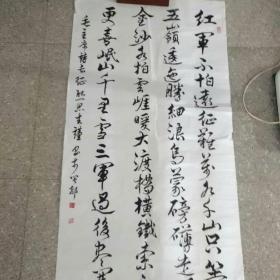 紅軍不怕遠征難萬水千山只等
五山嶺逶迤騰細浪烏蒙磅礴走
金沙水拍雲崖暖大渡橋橫鐵索
更喜岷山千里雪三軍過後盡
毛主席詩長征